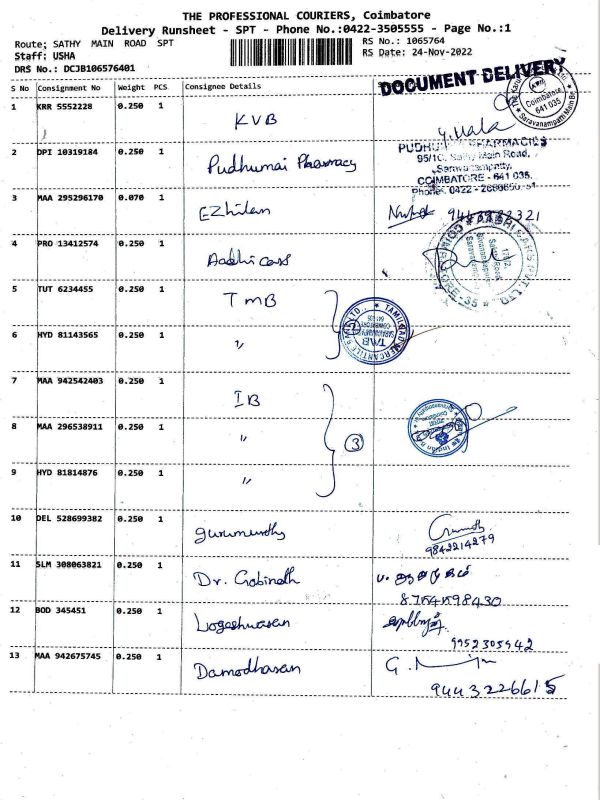 THE PROFESSIONAL COURIERS, Coimbatore
Delivery Runsheet - SPT - Phone No.:0422-3505555 - Page No.:1
Route; SATHY MAIN ROAD SPT
RS No.: 1065764
Staff: USHA
RS Date: 24-Nov-2022
DRS No.: DCJB106576401
DOCUMENT DELIVERY
S No Consignment No Weight PCS Consignee Details
Coimbatore
641 035
1 KRR 5552228 0.250 1 KVB
2 DPI 10319184 0.250 1 Pudhumai Pharmacy
95/1C, Sathy Main Road,
COIMBATORE - 641 035.
3 MAA 295296170 0.070 1 EZhilan
4 PRO 13412574 0.250 1 Aadhi cars
5 TUT 6234455 0.250 1 TMB
TMB
6 HYD 81143565 0.250 1 "
7 MAA 942542403 0.250 1 IB
8 MAA 296538911 0.250 1 " 3
9 HYD 81814876 0.250 1 "
10 DEL 528699382 0.250 1 gurumurthy
9842214279
11 SLM 308063821 0.250 1 Dr. Gobinath
8754598430
12 BOD 345451 0.250 1 Logeshwaran
9952305942
13 MAA 942675745 0.250 1 Damodharan
9443226615